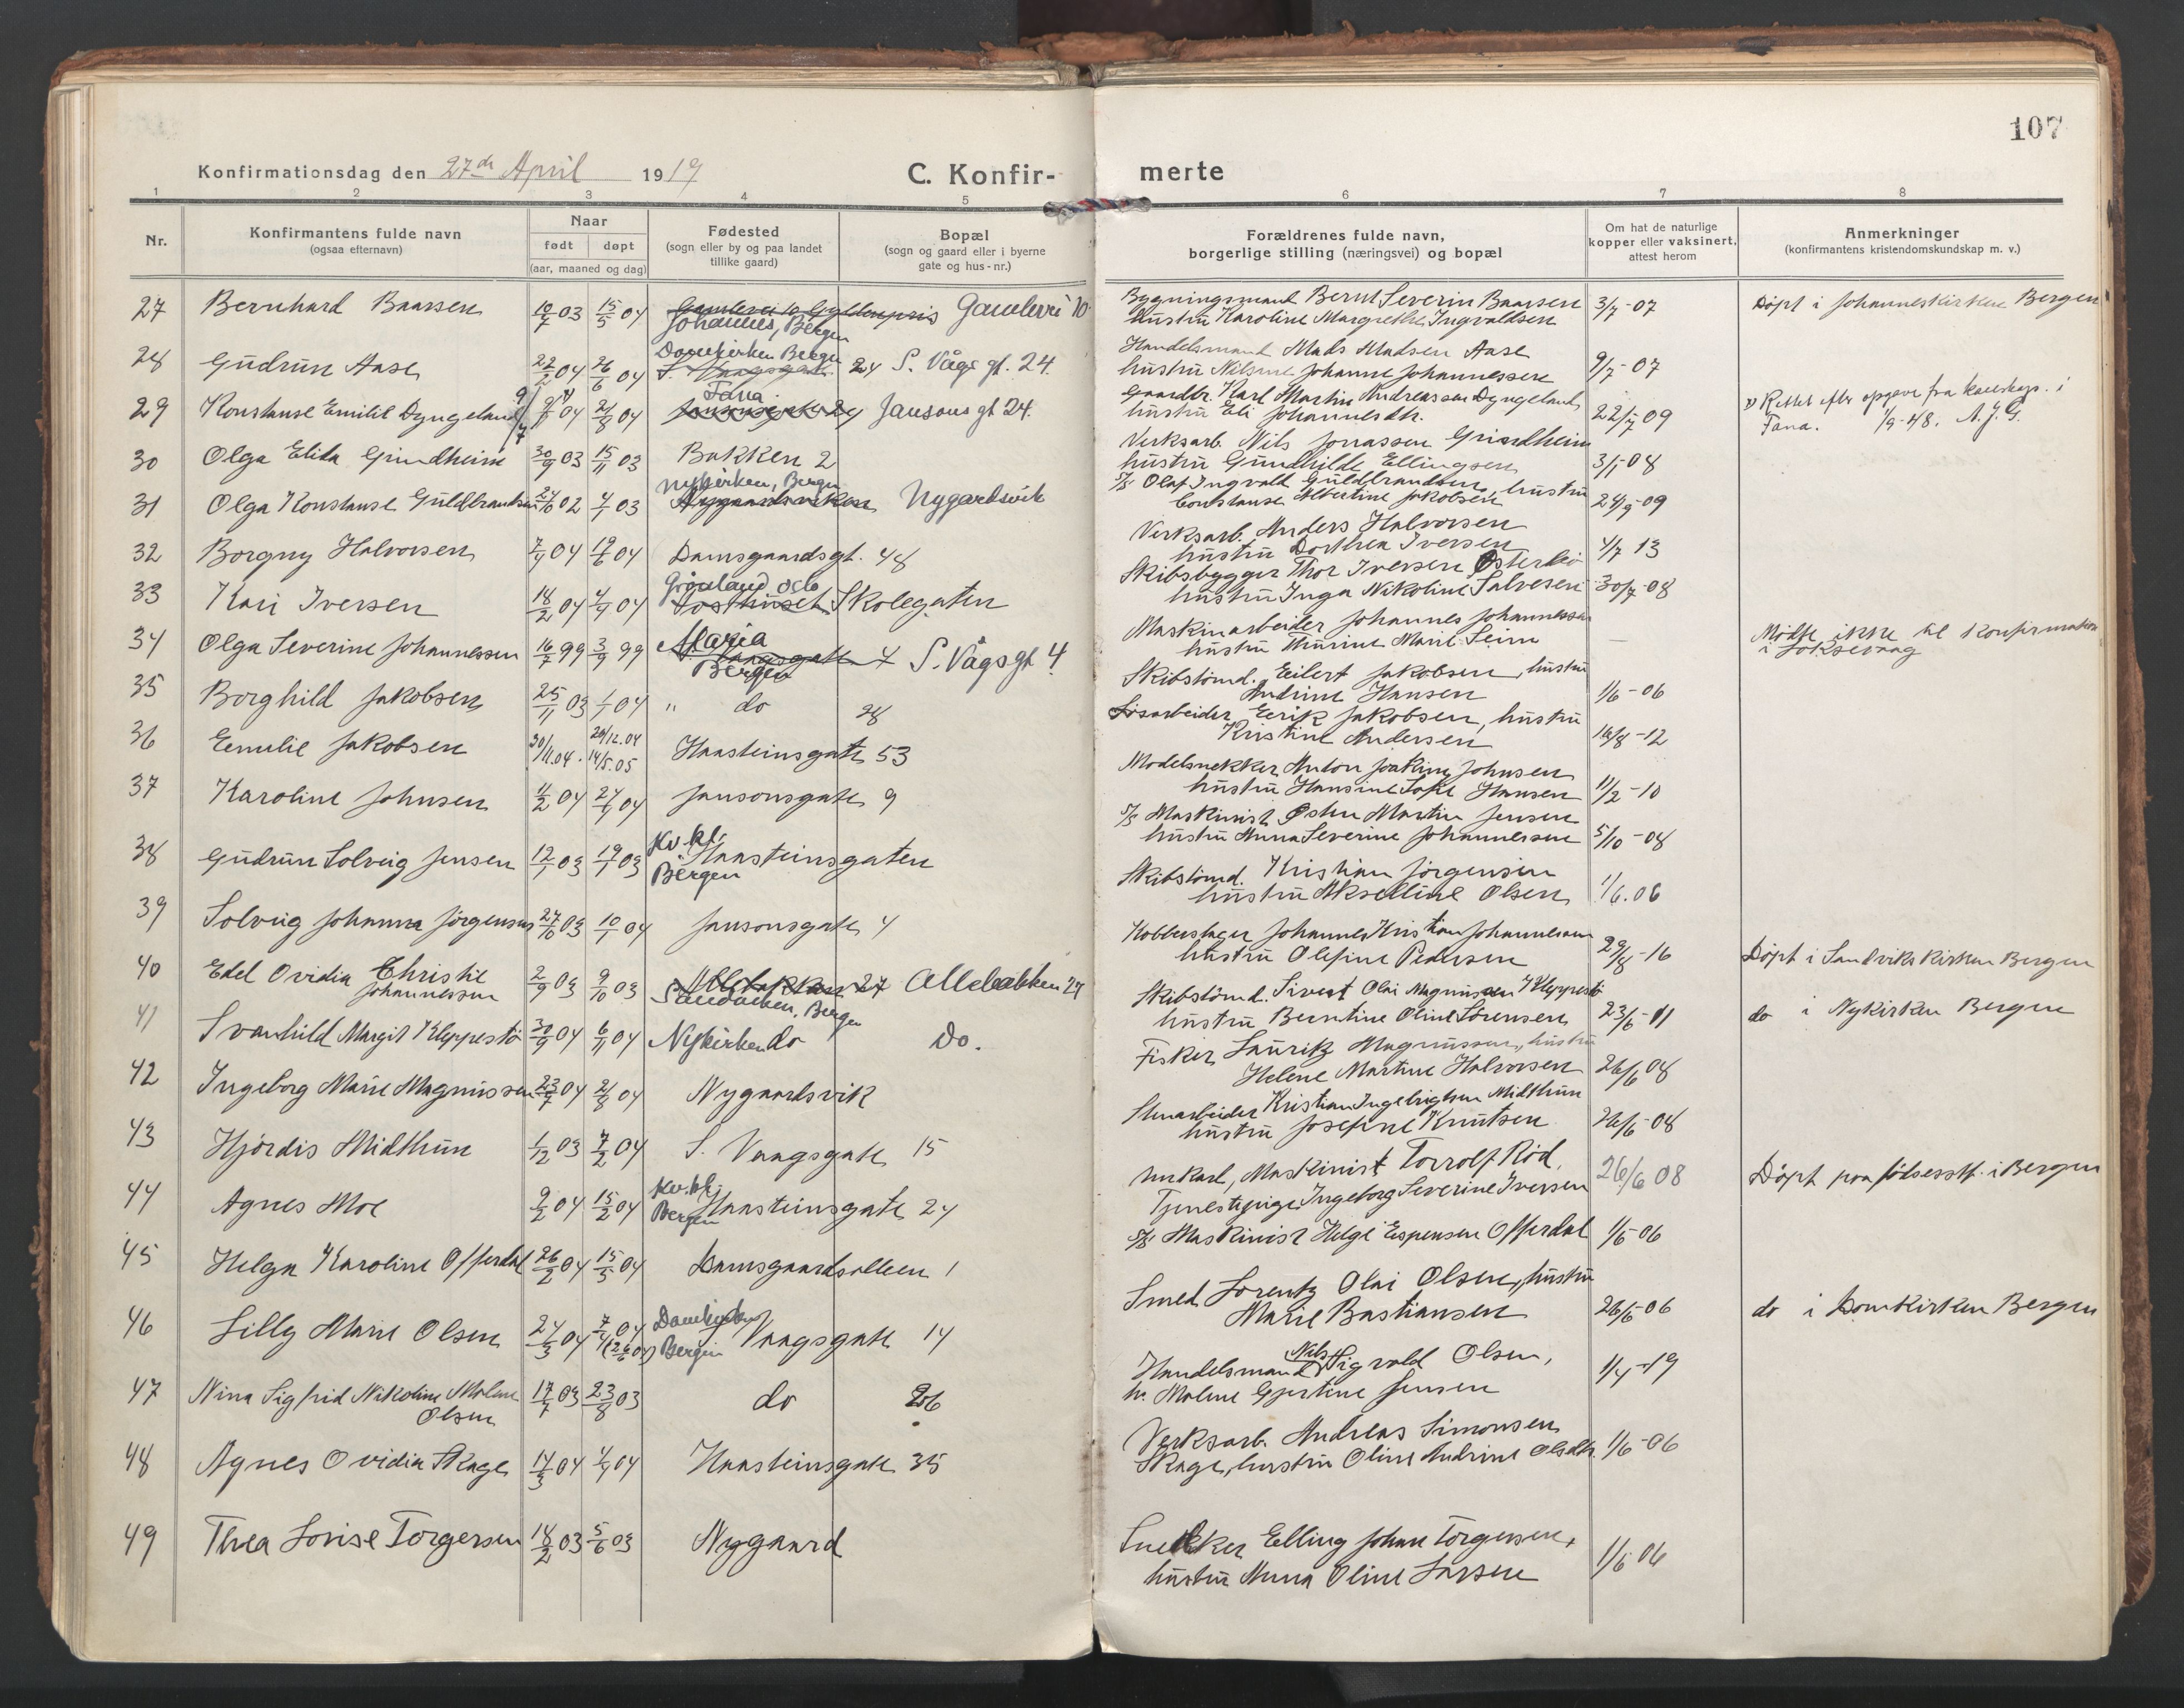 107
Konfirmationsdag den 27de April 1919
C. Konfir-
merte
1 2 3 4 5 6 7 8
Nr.
Konfirmantens fulde navn
(ogsaa efternavn)
Naar
født døpt
(aar, maaned og dag)
Fødested
(sogn eller by og paa landet
tillike gaard)
Bopæl
(sogn og gaard eller i byerne
gate og hus-nr.)
Forældrenes fulde navn,
borgerlige stilling (næringsvei) og bopæl
Om hat de naturlige
kopper eller vaksinert,
attest herom
Anmerkninger
(konfirmantens kristendomskundskap m. v.)
27 Bernhard Baarsen 10/7 03 15/5 04 Gamlevei 10 Gyldenpris Gamlevei 10
Johannes, Bergen
Bygningsmand Bernt Severin Baarsen 3/7-07 Döpt i Johanneskirken Bergen
hustru Karoline Margrethe Ingvaldsen
28 Gudrun Aase 22/2 04 26/6 04 Domkirken Bergen
S. Vaagsgate 24 S. Vågs gt. 24.
Handelsmand Mads Madsen Aase
hustru Nilsine Johanne Johannessen 9/7-07
29 Konstanse Emilie Dyngeland 04 21/8 04 Fana
Jansonsgate 24 Jansons gt 24.
Gaardbr. Karl Martin Andreassen Dyngeland
hustru Eli Johannesdtr. 22/7 09
1) Rettet efter opgave fra i
Fana. 1/9-48. A.J.G.
30 Olga Elida Grindheim 30/9 03 15/11 03 Bakken 2
Verksarb. Nils Jonassen Grindheim
hustru Gundhilde Ellingsen 3/1-08
31 Olga Konstanse Guldbrandsen 24/10 02 4/1 03 Nykirken, Bergen
Nygaardsviken Nygardsvik
S/S Olaf Ingvald Guldbrandsen, hustru
Constanse Albertine Jakobsen 24/9-09
32 Borgny Halvorsen 7/4 04 19/6 04 Damsgaardsgt. 48
Verksarb. Anders Halvorsen
hustru Dorthea Iversen 4/7 13
33 Kari Iversen 18/2 04 4/4 04 Grönland Oslo
Posthuset Skolegaten
Skibsbygger Thor Iversen Österbö
hustru Inga Nikoline Salvesen 30/7-08
34 Olga Severine Johannessen 16/7 99 3/9 99 Maria
Vaagsgaten 4 S. Vågsgt 4
Bergen
Maskinarbeider Johannes Johannessen
hustru Thurine Marie Seim —
Mødte ikke til Konfirmation
i Loksevaag
35 Borghild Jakobsen 25/11 03 1/1 04 " do 28
Skibstömd. Eilert Jakobsen, hustru
Andrine Hansen 1/6-06
36 Emilie Jakobsen 30/11.04. 26/12.04
14/5.05 Haasteinsgate 53
Löisarbeider Eerik Jakobsen, hustru
Kristine Andersen 16/8-12
37 Karoline Johnsen 11/2 04 24/4 04 Jansonsgate 9
Modelsnekker Anton Joakim Johnsen
hustru Hansine Sofie Hansen 11/2-10
38 Gudrun Solveig Jensen 12/1 03 19/7 03 Kv.kl.
Haasteinsgaten
Bergen
S/S Maskinist Osten Martin Jensen
hustru Anna Severine Johannessen 5/10-08
39 Solveig Johanna Jörgensen 27/10 03 10/1 04 Jansonsgate 4
Skibstömd. Kristian Jörgensen
hustru Akselline Olsen 1/6.06
40 Edel Ovidia Christie
Johannessen 2/9 03 9/10 03 Allebakken 27 Allebakken 27
Sandviken, Bergen
Kobberslager Johannes Kristian Johannessen
hustru Olefine Pedersen 29/8-16 Döpt i Sandvikskirken Bergen
41 Svanhild Margit Kleppestö 30/9 04 6/11 04 Nykirken do Do.
Skibstömd. Sivert Olai Magnussen Kleppestö
hustru Berntine Oline Sörensen 23/6-11 do i Nykirken Bergen
42 Ingeborg Marie Magnussen 23/7 04 21/8 04 Nygaardsvik
Fisker Lauritz Magnussen, hustru
Helene Martine Halvorsen 26/6 08
43 Hjördis Midthun 1/12 03 7/2 04 S. Vaagsgate 15
Stenarbeider Kristian Ingebrigtsen Midthun
hustru Josefine Knutsen 26/6-08
44 Agnes Moe 9/2 04 15/2 04 Kv.kl.
Bergen Haasteinsgate 24
Unkarl, Maskinist Torrolf Röd,
Tjenestepige Ingeborg Severine Iversen 26/6 08 Döpt paa födselsst. i Bergen
45 Helga Karoline Offerdal 26/2 04 15/5 04 Damsgaardsalleen 1
S/S Maskinist Helge Espensen Offerdal 1/6-06
46 Lilly Marie Olsen 24/3 04 7/4 04
(26/6 04) Domkirken
Bergen Vaagsgate 14
Smed Lorentz Olai Olsen, hustru
Marie Bastiansen 26/6-06 do i Domkirken Bergen
47 Nina Sigfrid Nikoline Malene
Olsen 17/7 03 23/8 03 do 26
Handelsmand Nils Sigvald Olsen,
h. Malene Gjertine Jensen 1/4-19
48 Agnes Ovidia Skage 14/3 04 4/4 04 Haasteinsgate 35
Verksarb. Andreas Simonsen
Skage, hustru Oline Andrine Olsdtr. 1/6-06
49 Thea Lovise Torgersen 18/2 03 5/6 03 Nygaard
Snekker Elling Johan Torgersen,
hustru Anna Oline Larsen 1/6 06